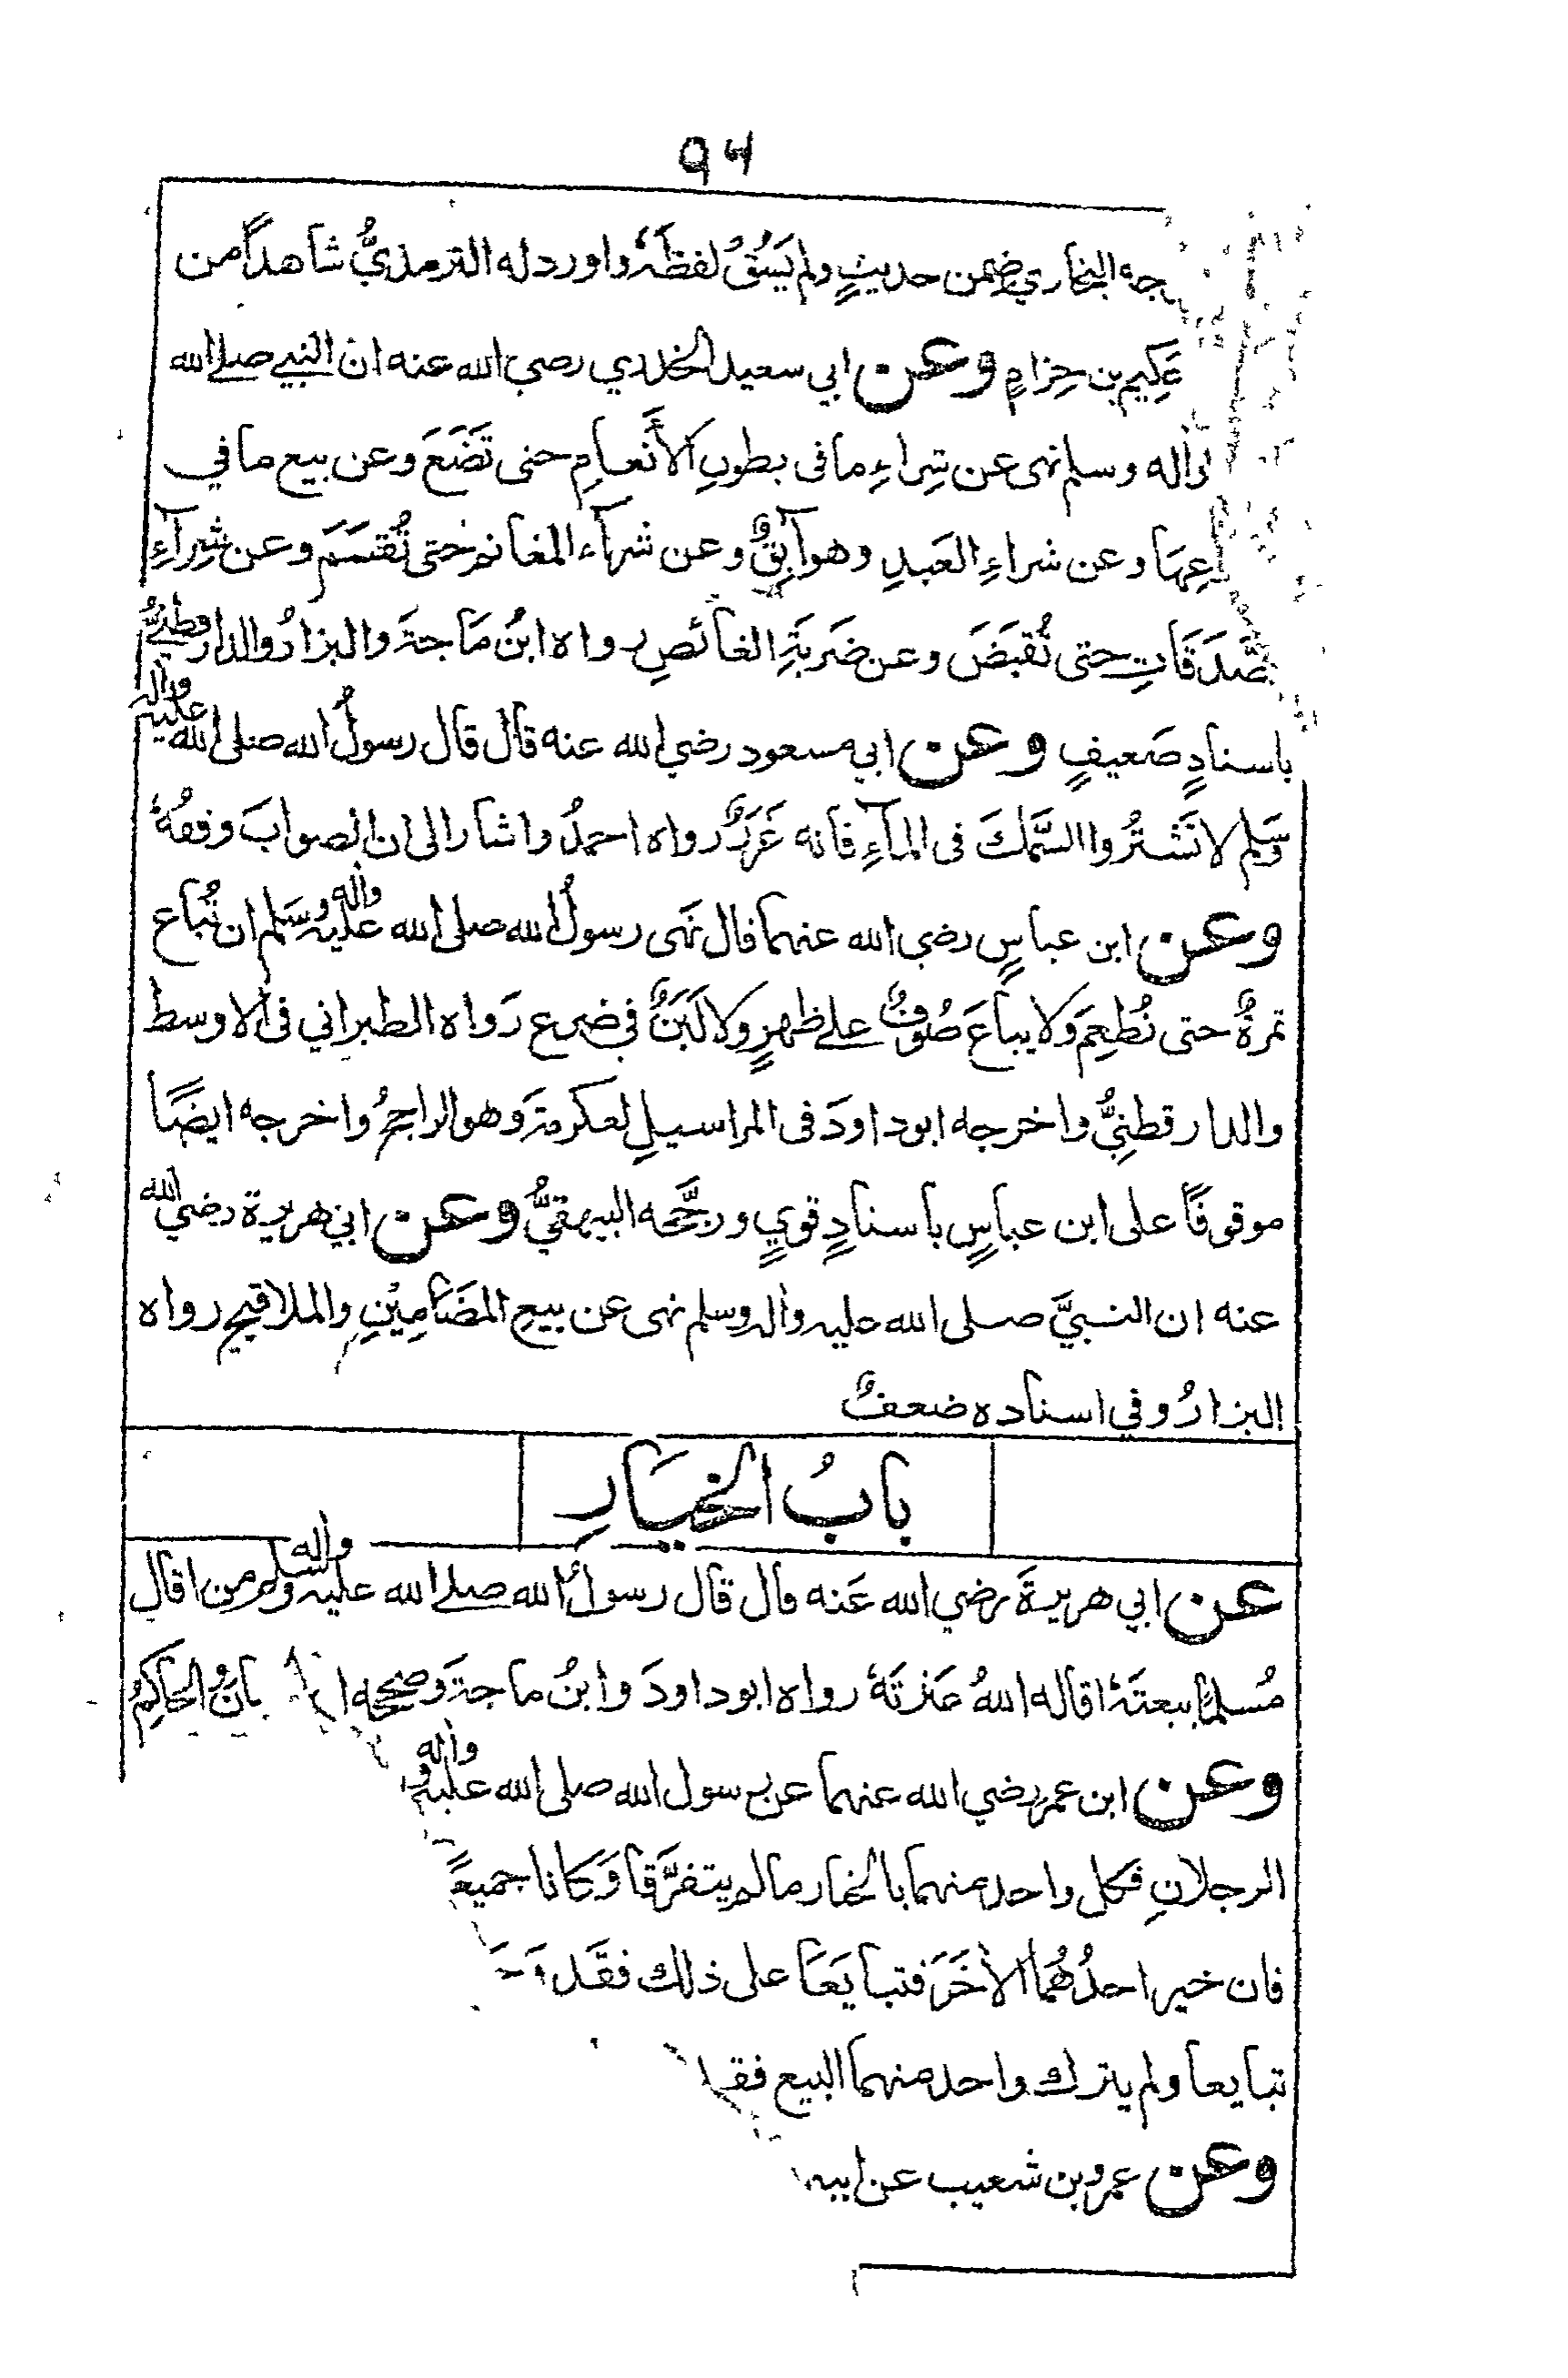 ٩٦
جه البخاري ضمن حديثٍ ولم يَسُقْ لفظَهٗ واورد له الترمذيُّ شاهداً من
حَكِيم بن حِزامٍ وعن ابي سعيد الخدري رضي الله عنه ان النبي صلى الله
واٰله وسلم نهى عن شِراءِ ما فى بطونِ الأَنعامِ حتى تَضَعَ وعن بيع ما في
عِهَا وعن شراءِ العَبدِ وهو آبِقٌ وعن شرآء المغانم حتى تُقسَمَ وعن شِرآءِ
صَّدَقَاتِ حتى تُقبَضَ وعن ضَربَةِ الغائصِ رواه ابنُ مَاجةَ والبزارُ والدارقطنيُّ
باسنادٍ ضَعيفٍ وعن ابي مسعود رضي الله عنه قال قال رسولُ الله صلى الله عليه واٰله
وسَلم لا تَشتَرُوا السَّمَكَ فى المآءِ فانه غَرَرٌ رواه احمدُ واشار الى ان الصوابَ وقفُهٗ
وعن ابن عباسٍ رضي الله عنهما قال نَهى رسولُ الله صلى الله عليه واٰله وسَلم ان تُباع
ثمرةٌ حتى تُطعِمَ ولا يباعَ صُوفٌ على ظهرٍ ولا لَبَنٌ في ضرع رَواه الطبراني فى الاوسط
والدارقطنِيُّ واخرجه ابوداودَ فى المراسيلِ لعكرمةَ وهو الراجحُ واخرجه ايضًا
موقوفًا على ابن عباسٍ باسنادٍ قويٍ ورجَّحه البيهقيُّ وعن ابي هريرة رضي الله
عنه ان النبيَّ صلى الله عليه واٰله وسلم نهى عن بيعِ المَضَامِيْنِ والملاقيحِ رواه
البزارُ وفي اسناده ضعفٌ
بابُ الخيَارِ
عن ابي هريرةَ رضي الله عَنه قال قال رسولُ الله صلى الله عليه واٰله وسلم من اقال
مُسلمًا بيعتَهٗ اقاله اللهُ عَثرتَهٗ رواه ابوداودَ وابنُ ماجةَ وصححه بانَ والحاكِمُ
وعن ابن عمر رضي الله عنهما عن رسول الله صلى الله عليه واٰله و
الرجلانِ فكل واحد منهما بالخيار مالم يتفرَّقا وَكانا جميعًا
فان خير احدُهُما الاٰخَرَ فتبايَعَا على ذلك فقَد
تبايعا ولم يترك واحد منهما البيع فقد
وعن عمرو بن شعيب عن ابيه